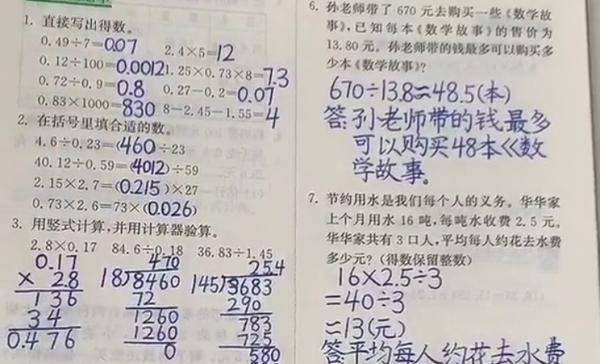 1. 直接写出得数。
0.49÷7=0.07 2.4×5=12
0.12÷100=0.0012 1.25×0.73×8=7.3
0.72÷0.9=0.8 0.27-0.2=0.07
0.83×1000=830 8-2.45-1.55=4
2. 在括号里填合适的数。
4.6÷0.23=(460)÷23
40.12÷0.59=(4012)÷59
2.15×2.7=(0.215)×27
0.73×2.6=73×(0.026)
3. 用竖式计算,并用计算器验算。
2.8×0.17 84.6÷0.18 36.83÷1.45
0.17
× 2.8
1 3 6
3 4
0.4 7 6
470
18)8460
72
1260
1260
0
254
145)3683
290
783
725
580
6. 孙老师带了 670 元去购买一些《数学故
事》,已知每本《数学故事》的售价为
13.80 元。孙老师带的钱最多可以购买多
少本《数学故事》?
670÷13.8≈48.5(本)
答:孙老师带的钱最多
可以购买48本《数
学故事。
7. 节约用水是我们每个人的义务。华华家
上个月用水 16 吨,每吨水收费 2.5 元。
华华家共有 3 口人,平均每人约花去水费
多少元?(得数保留整数)
16×2.5÷3
=40÷3
≈13(元)
答平均每人约花去水费